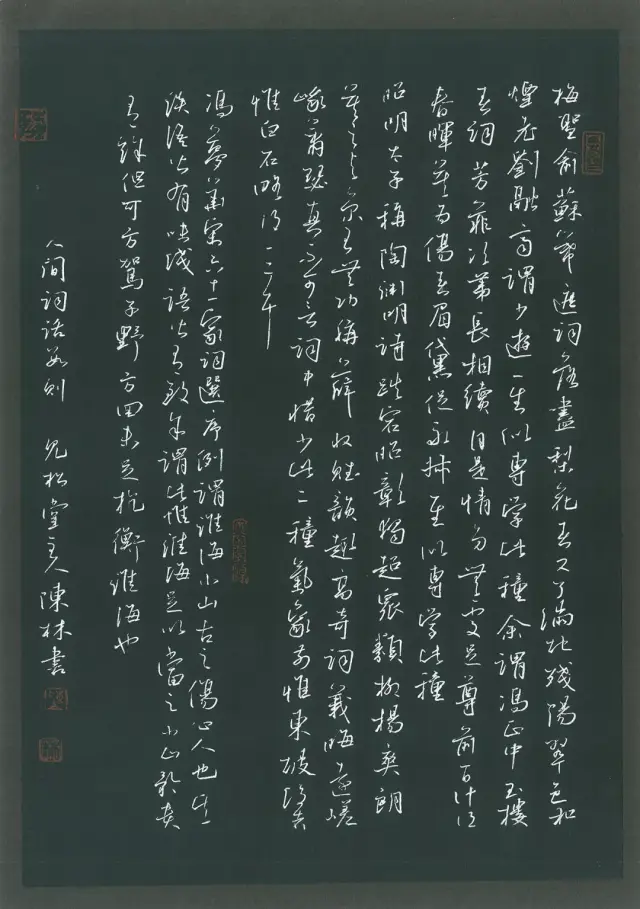 梅聖俞蘇幕遮詞落盡梨花春又了滿地殘陽翠色和
煙老劉融齋謂少遊一生似專學此種余謂馮正中玉樓
春詞芳菲次第長相續自是情多無處足尊前百計得
春暉莫為傷春眉黛促永叔一生似專學此種
昭明太子稱陶淵明詩跌宕昭彰獨超眾類抑揚爽朗
莫之與京王無功稱薛收賦韻趣高奇詞義晦遠嵯
峨蕭瑟真不可言詞中惜少此二種氣象前惟東坡後者
惟白石略得一二耳
馮夢華宋六十一家詞選序例謂淮海小山古之傷心人也其
淡語皆有味淺語皆有致余謂此惟淮海足以當之小山矜貴
有餘但可方駕子野方回未足抗衡淮海也
人間詞話数則 見松堂主人陳林書